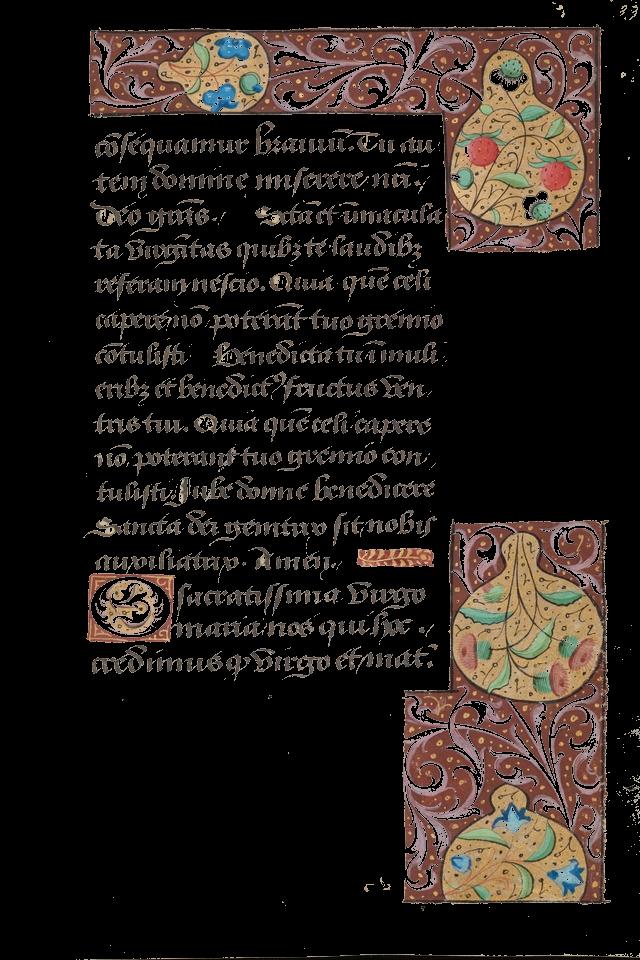 co̅sequamur brauiu̅. Tu au
tem domine miserere nr̅i.
Deo gr̅as. Sc̅ta et i̅macula
ta virg̅itas quibꝫ te laudibꝫ
referam nescio. Quia que̅ celi
capere no̅ potera̅t tuo gremio
co̅tulisti Benedicta tu i̅ muli
eribꝫ et benedictꝰ fructus ven
tris tui. Quia que̅ celi capere
no̅ poterant tuo gremio con
tulisti Jube domne benedicere
Sancta dei genitrix sit nobis
auxiliatrix. Amen.
O sacratissima virgo
maria nos qui hoc
credimus ꝙ virgo et mat̅.